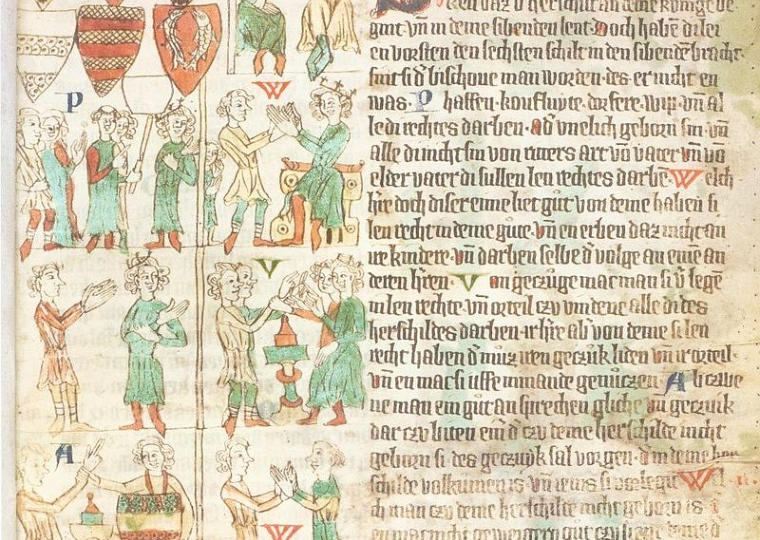 P
W
V
A
W
ken daz d herschilt an deme kunige be
gint · vn̄ in deme sibenden lent · Doch habē di lei
en vorsten den sechsten schilt in den sibendē bracht ·
sint si d bischoue man worden · des er nicht en
was · P haffen · koufluyte · dorfere · wip · vn̄ al
le di rechtes darben · ad vnelich geborn sin · vn̄
alle di nicht sin von ritters art vō vater vn̄ vō
elder vater di sullen len rechtes darbē · W elch
h're doch dirre eime liet gut von deme haben si
len recht in deme gute · vn̄ en erben daz nicht an
ire kindere · vn̄ darben selbe d volge an eine an
deren h'ren · V on geczuge mac man si v'legē
in len rechte · vn̄ orteil czu vindene alle di des
herschildes darben · ir h're ab' von deme si len
recht haben d muz iren geczuk liden vn̄ ir orteil ·
vn̄ en mac si uffe nimande genuczen · A b czwe
ne man ein gut an sprechen gliche vn geczuik
dar czu biten ein d czu deme herschilde nicht
geborn si · des geczuyk sal vorgen · d in deme her
schilde volkumen is · vn̄ iens si vorlegit · W el
ch man czu deme herschilde nicht geborn is